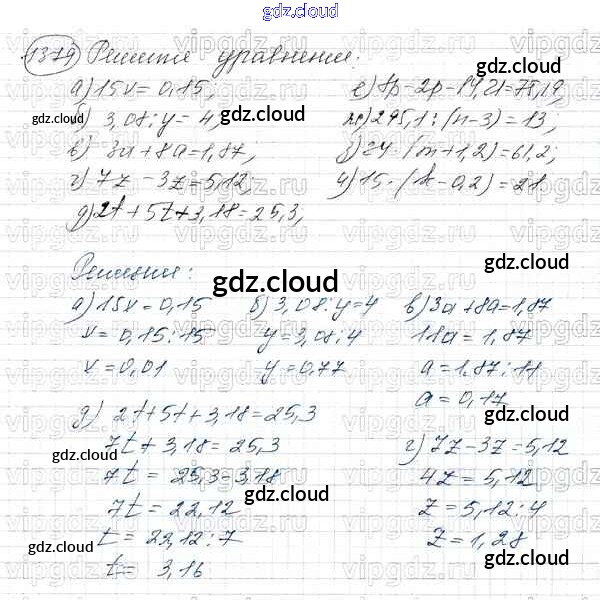 gdz.cloud
1379 Решите уравнение:
а) 15x = 0,15; е) 8p - 2p - 14,21 = 75,19;
б) 3,08 : y = 4; ж) 295,1 : (n - 3) = 13;
в) 3a + 8a = 1,87; з) 34 · (m + 1,2) = 61,2;
г) 7z - 3z = 5,12; и) 15 · (k - 0,2) = 21.
д) 2t + 5t + 3,18 = 25,3;
Решение:
а) 15x = 0,15 б) 3,08 : y = 4 в) 3a + 8a = 1,87
x = 0,15 : 15 y = 3,08 : 4 11a = 1,87
x = 0,01 y = 0,77 a = 1,87 : 11
a = 0,17
д) 2t + 5t + 3,18 = 25,3
7t + 3,18 = 25,3 г) 7z - 3z = 5,12
7t = 25,3 - 3,18 4z = 5,12
7t = 22,12 z = 5,12 : 4
t = 22,12 : 7 z = 1,28
t = 3,16
gdz.cloud
gdz.cloud
gdz.cloud
gdz.cloud
gdz.cloud
gdz.cloud
gdz.cloud
gdz.cloud
gdz.cloud
gdz.cloud
vipgdz.ru